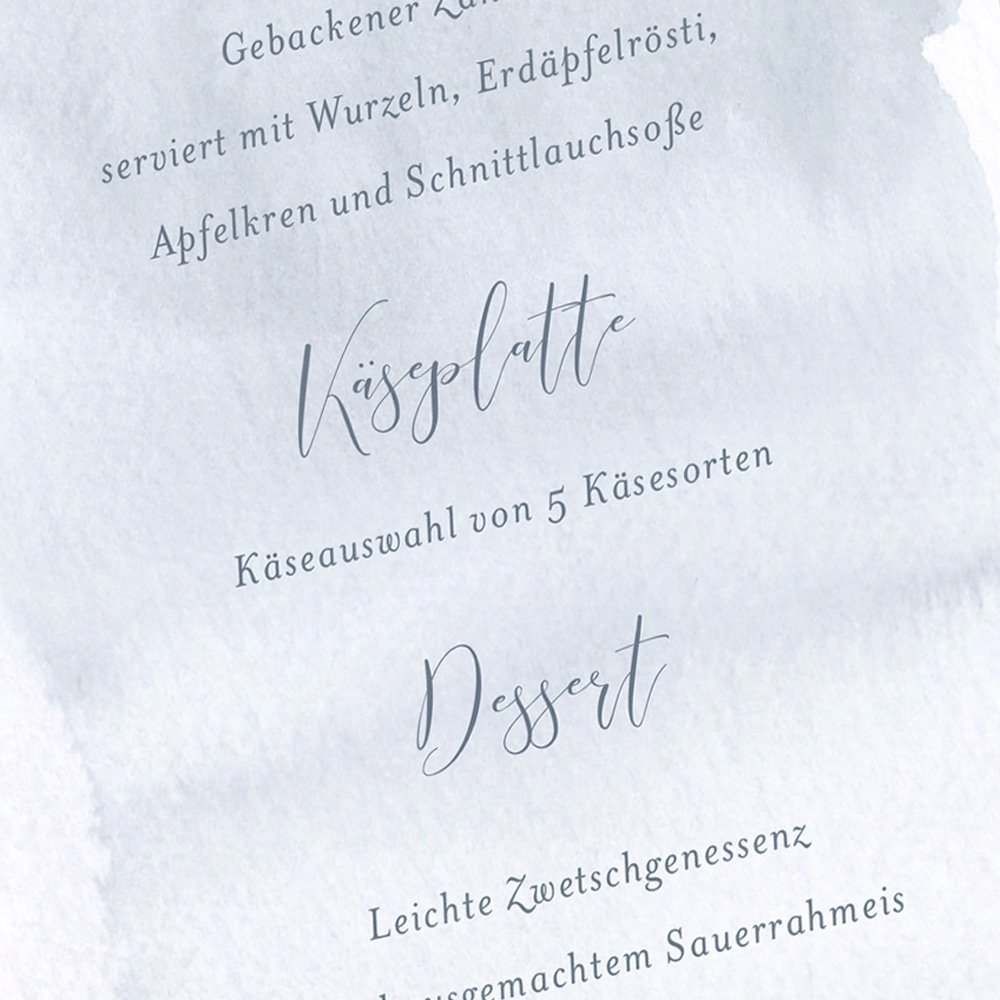 Gebackener
serviert mit Wurzeln, Erdäpfelrösti,
Apfelkren und Schnittlauchsoße
Käseplatte
Käseauswahl von 5 Käsesorten
Dessert
Leichte Zwetschgenessenz
Sauerrahmeis